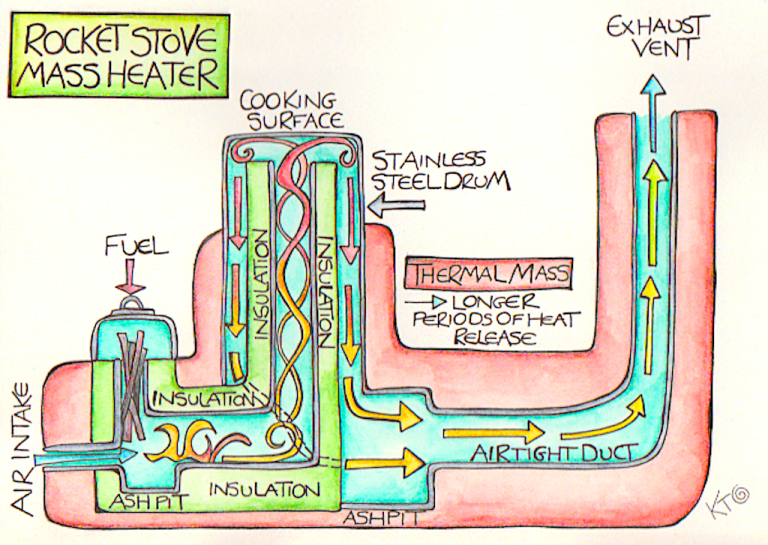 ROCKET STOVE
MASS HEATER
EXHAUST
VENT
COOKING
SURFACE
STAINLESS
STEEL DRUM
FUEL
INSULATION
INSULATION
THERMAL MASS
→ LONGER
PERIODS OF HEAT
RELEASE
INSULATION
AIR INTAKE
AIRTIGHT DUCT
ASHPIT
INSULATION
ASHPIT
KT